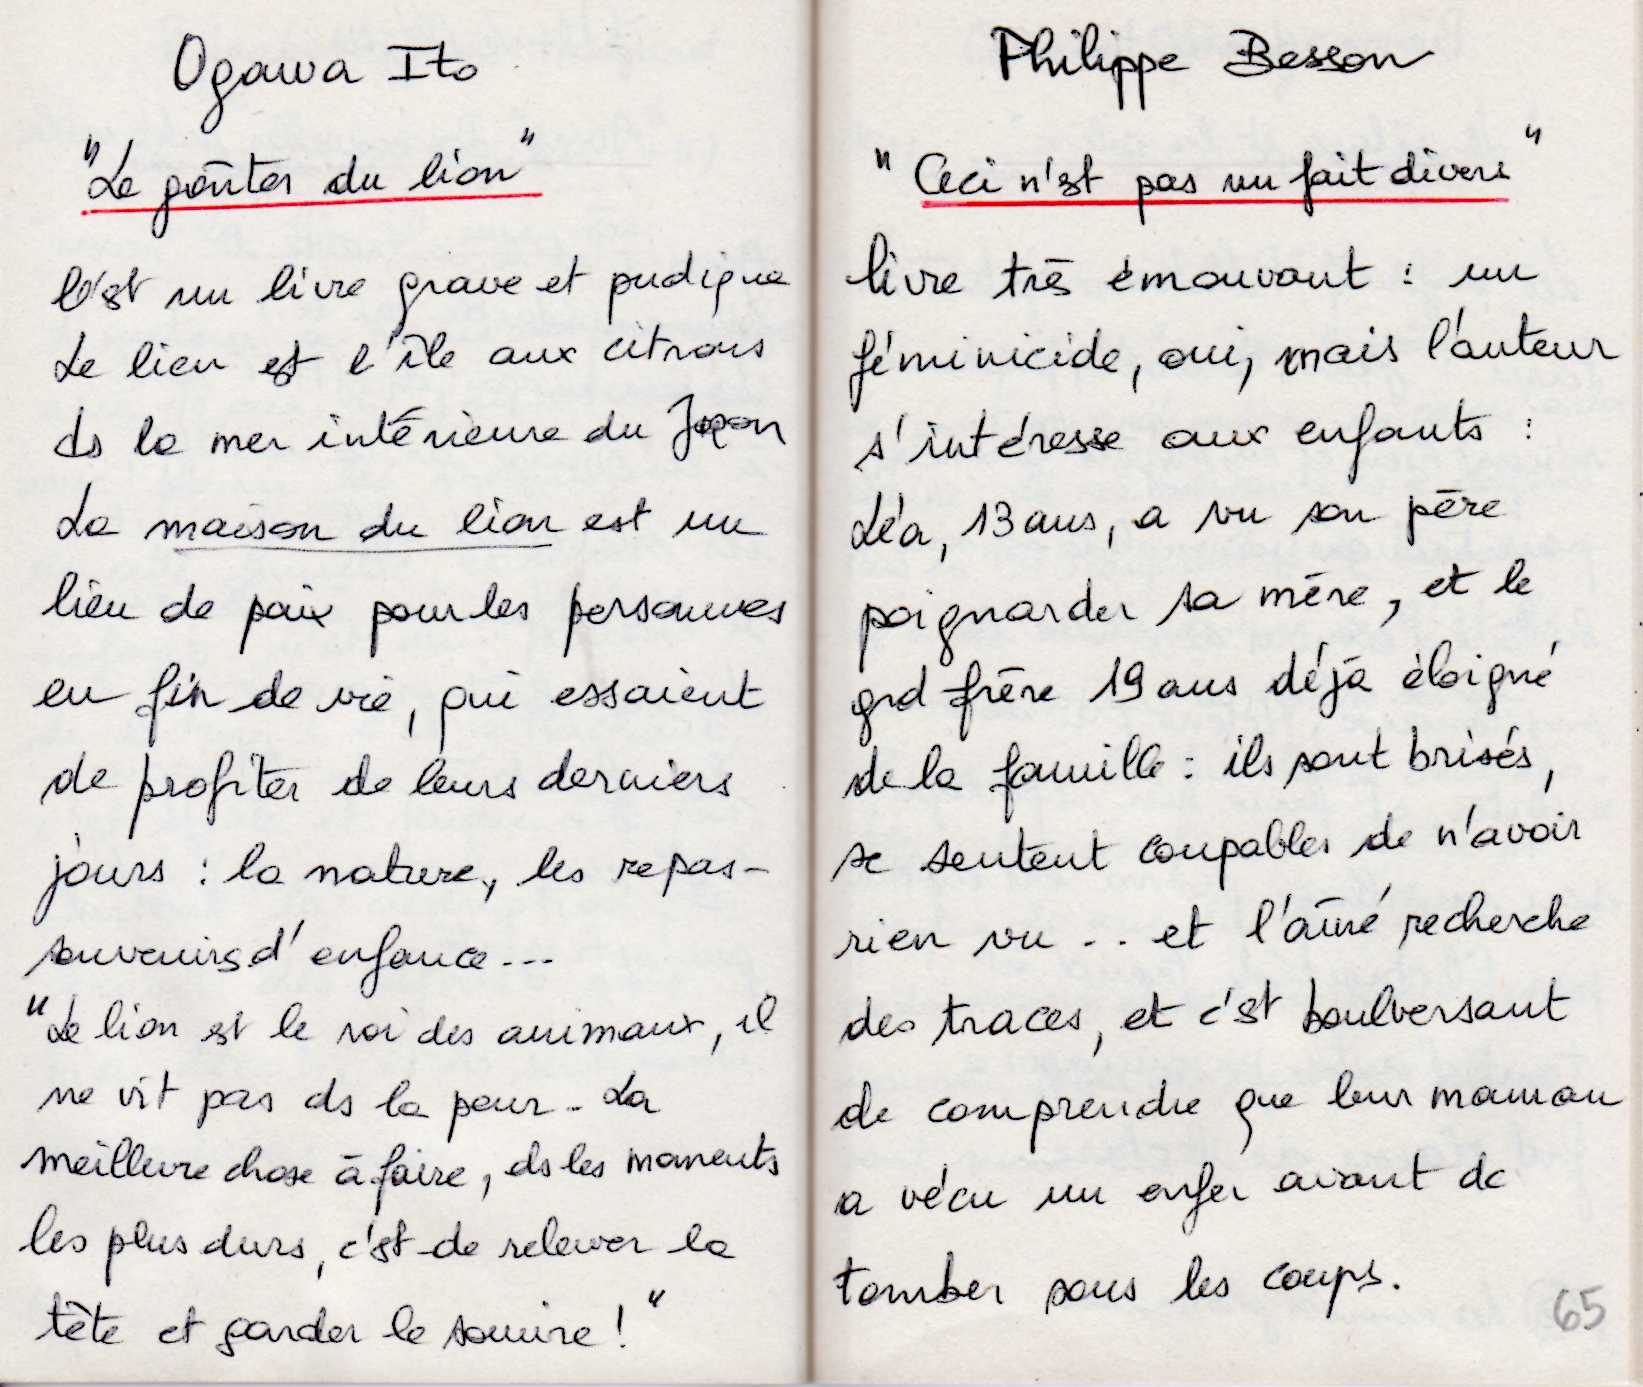 Ogawa Ito
"Le goûter du lion"
C'est un livre grave et pudique
Le lieu est l'île aux citrons
ds la mer intérieure du Japon
La maison du lion est un
lieu de paix pour les personnes
en fin de vie, qui essaient
de profiter de leurs derniers
jours : la nature, les repas-
souvenirs d'enfance...
"Le lion est le roi des animaux, il
ne vit pas ds la peur. La
meilleure chose à faire, ds les moments
les plus durs, c'est de relever la
tête et garder le sourire !"
Philippe Besson
"Ceci n'est pas un fait divers"
livre très émouvant : un
féminicide, oui, mais l'auteur
s'intéresse aux enfants :
Léa, 13 ans, a vu son père
poignarder sa mère, et le
grd frère 19 ans déjà éloigné
de la famille : ils sont brisés,
se sentent coupables de n'avoir
rien vu .. et l'aîné recherche
des traces, et c'est boulversant
de comprendre que leur maman
a vécu un enfer avant de
tomber sous les coups.
65